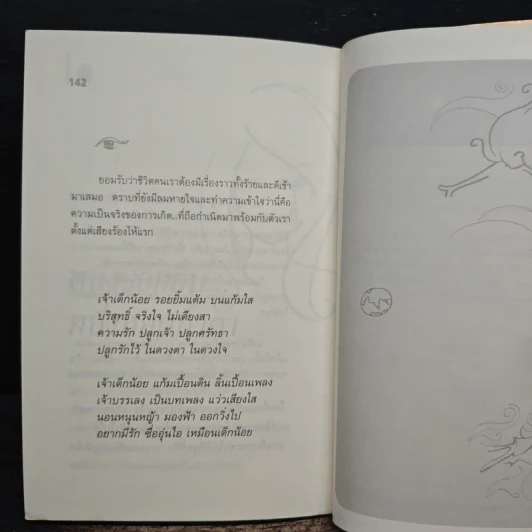 142
ยอมรับว่าชีวิตคนเราต้องมีเรื่องราวทั้งร้ายและดีเข้า
มาเสมอ ตราบที่ยังมีลมหายใจและทำความเข้าใจว่านี่คือ
ความเป็นจริงของการเกิด..ที่ถือกำเนิดมาพร้อมกับตัวเรา
ตั้งแต่เสียงร้องไห้แรก
เจ้าเด็กน้อย รอยยิ้มแต้ม บนแก้มใส
บริสุทธิ์ จริงใจ ไม่เดียงสา
ความรัก ปลูกเจ้า ปลูกศรัทธา
ปลูกรักไว้ ในดวงตา ในดวงใจ
เจ้าเด็กน้อย แก้มเปื้อนดิน ลิ้นเปื้อนเพลง
เจ้าบรรเลง เป็นบทเพลง แว่วเสียงใส
นอนหนุนหญ้า มองฟ้า ออกวิ่งไป
อยากมีรัก ซื่ออุ่นไอ เหมือนเด็กน้อย